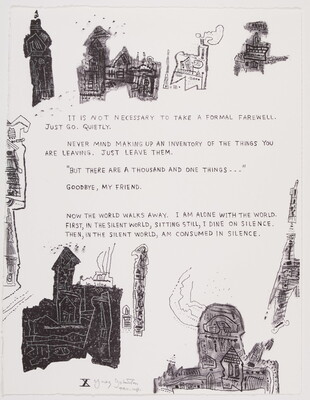 IT IS NOT NECESSARY TO TAKE A FORMAL FAREWELL.
JUST GO. QUIETLY.
NEVER MIND MAKING UP AN INVENTORY OF THE THINGS YOU
ARE LEAVING. JUST LEAVE THEM.
"BUT THERE ARE A THOUSAND AND ONE THINGS..."
GOODBYE, MY FRIEND.
NOW THE WORLD WALKS AWAY. I AM ALONE WITH THE WORLD.
FIRST, IN THE SILENT WORLD, SITTING STILL, I DINE ON SILENCE.
THEN, IN THE SILENT WORLD, AM CONSUMED IN SILENCE.
X